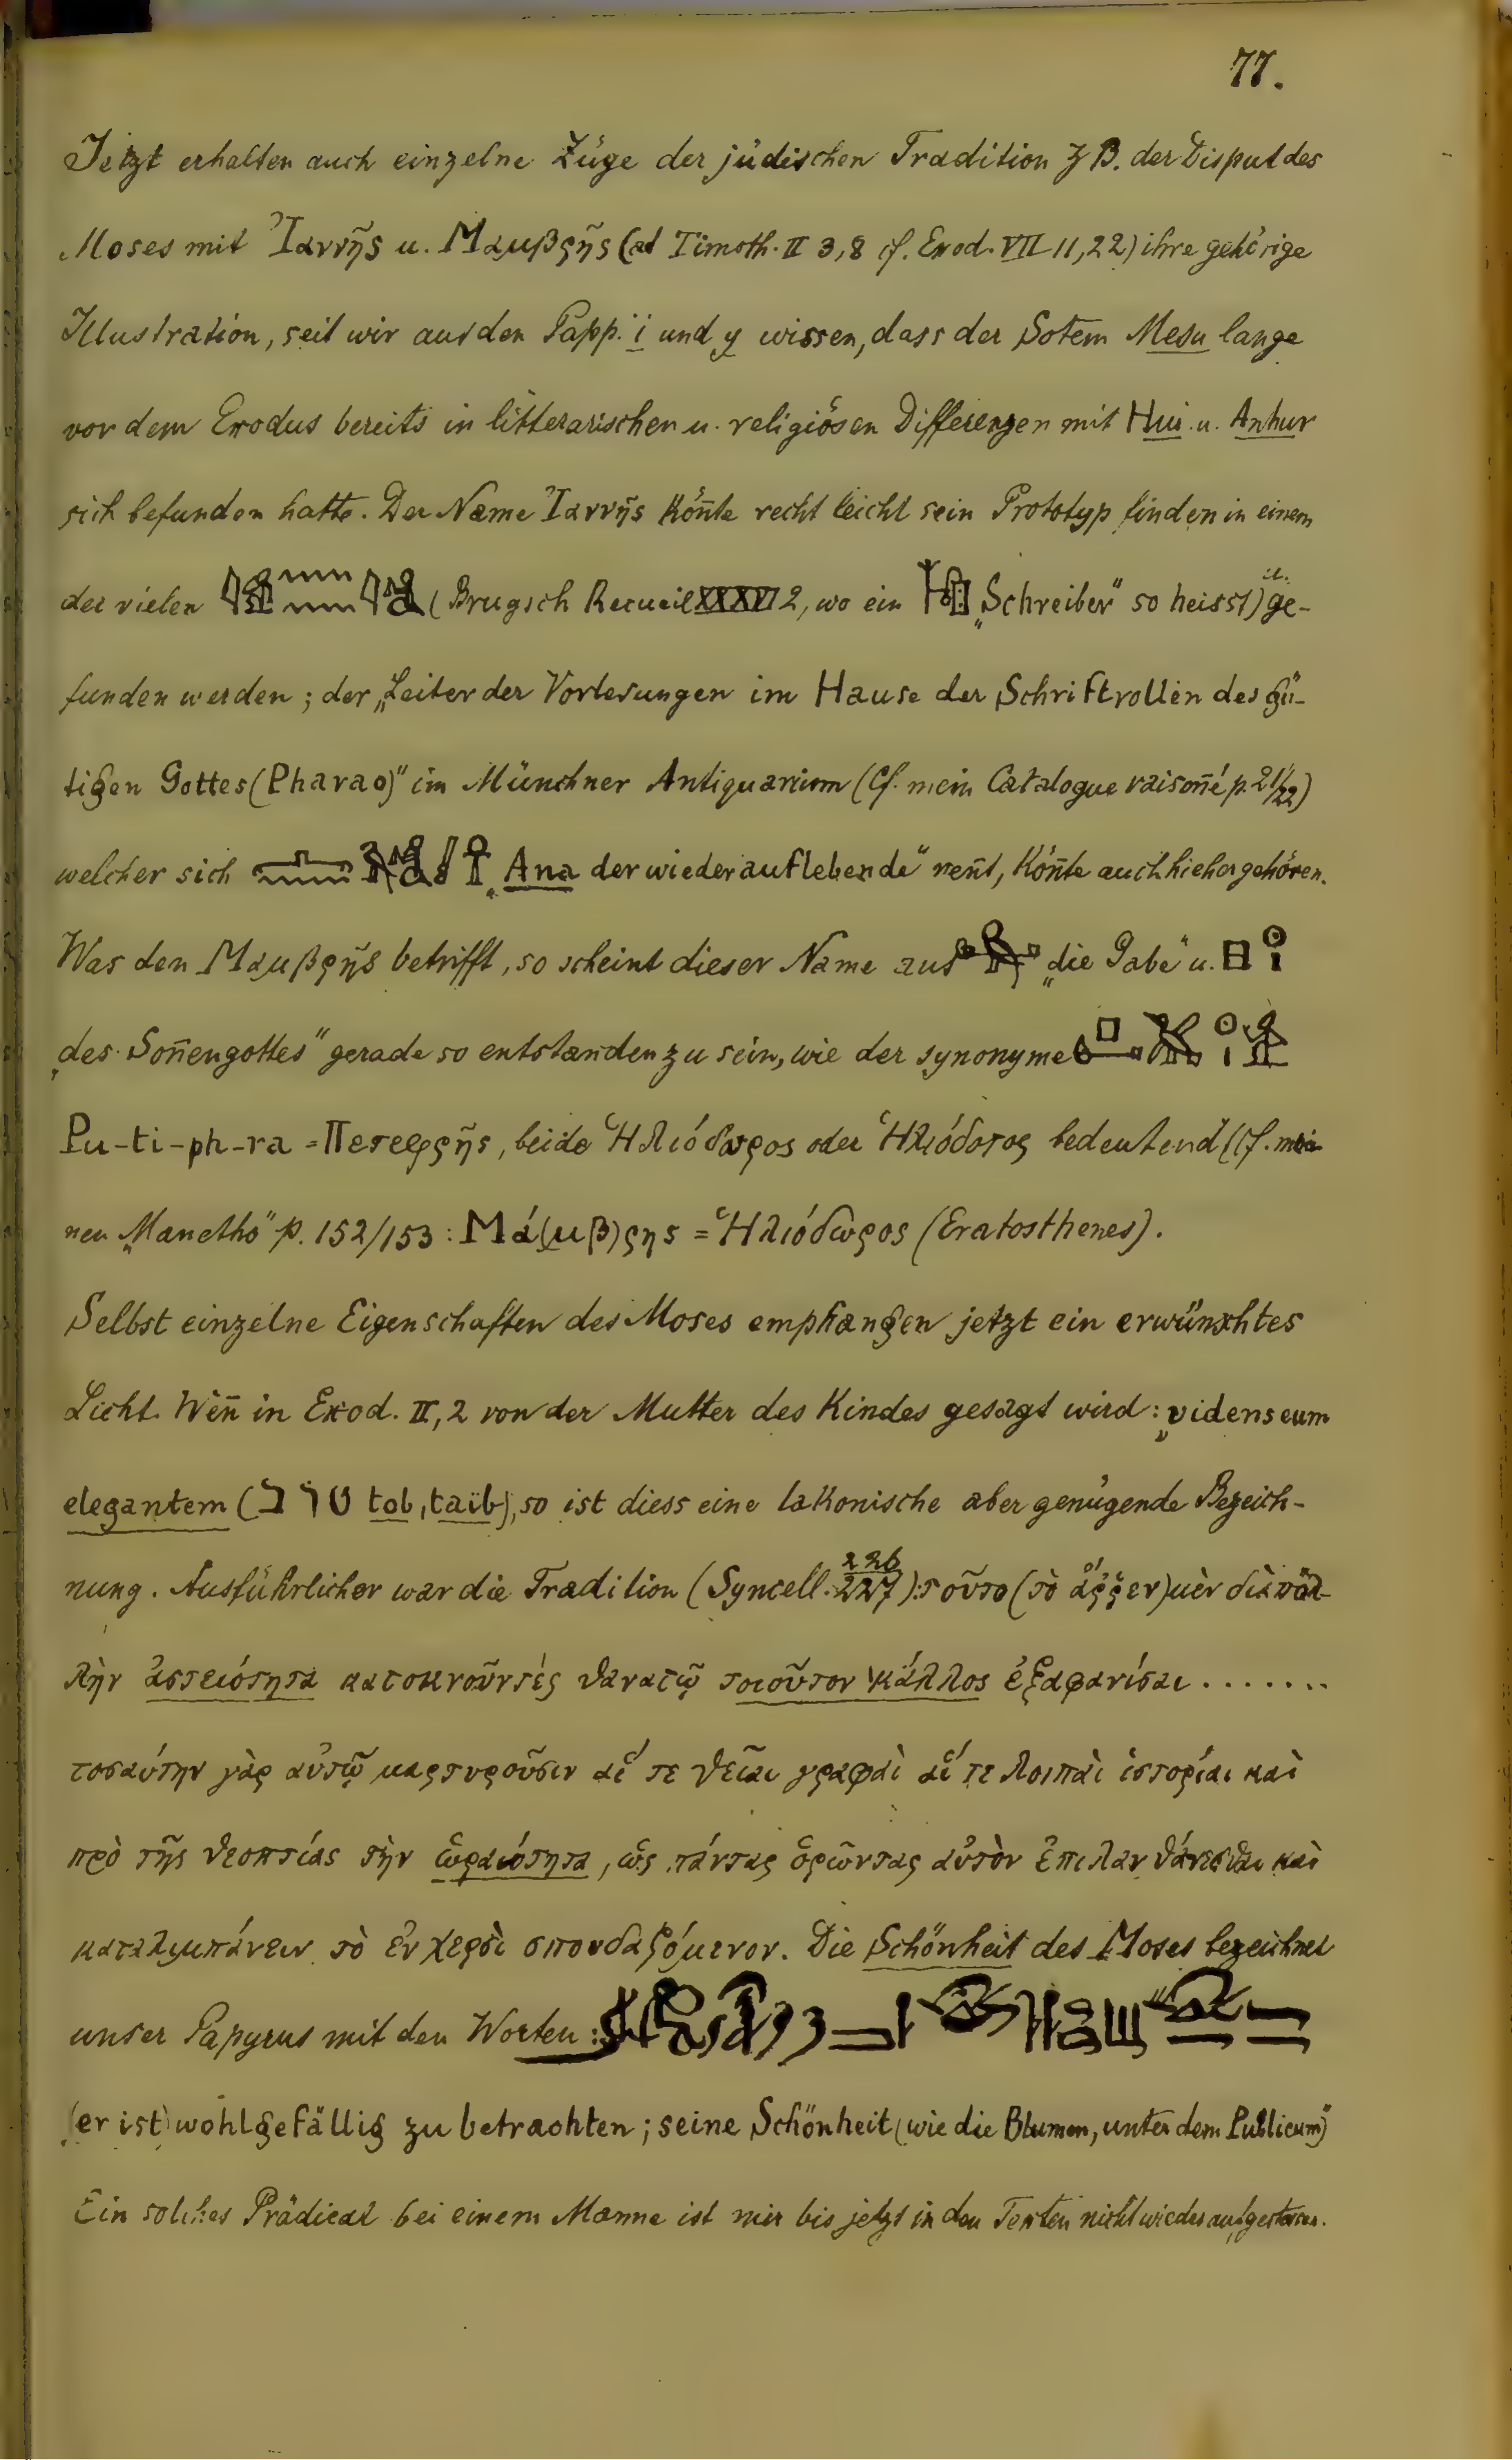 77.
Jetzt erhalten auch einzelne Züge der jüdischen Tradition z B. der Disput des
Moses mit Ἰαννῆς u. Μαμβρῆς (ad Timoth. II 3,8 cf. Exod. VII 11,22) ihre gehörige
Illustration, seit wir aus den Papp. i und y wissen, dass der Sotem Mesu lange
vor dem Exodus bereits in litterarischen u. religiösen Differenzen mit Hui u. Anhur
sich befunden hatte. Der Name Ἰαννῆς kön̄te recht leicht sein Prototyp finden in einem
der vielen (Brugsch Recueil XXXVI 2, wo ein „Schreiber" so heisst) ge-
funden werden; der „Leiter der Vorlesungen im Hause der Schriftrollen des gü-
tigen Gottes (Pharao)" im Münchner Antiquarium (Cf. mein Catalogue raison̄é p. 21/22)
welcher sich „Ana der wiederauflebende" nen̄t, kön̄te auch hieher gehören.
Was den Μαμβρῆς betrifft, so scheint dieser Name aus „die Gabe" u.
„des Son̄engottes" gerade so entstanden zu sein, wie der synonyme
Pu-ti-ph-ra = Πετεφρῆς, beide Ἡλιόδωρος oder Ἡλιόδοτος bedeutend (Cf. mei-
nen „Manetho" p. 152/153: Μά(μβ)ρης = Ἡλιόδωρος (Eratosthenes).
Selbst einzelne Eigenschaften des Moses emphangen jetzt ein erwünschtes
Licht. Wen̄ in Exod. II, 2 von der Mutter des Kindes gesagt wird: „videns eum
elegantem (טוב tob, taïb), so ist diess eine lakonische aber genügende Bezeich-
nung. Ausführlicher war die Tradition (Syncell. 226/227): τοῦτο (τὸ ἄῤῥεν) μὲν διὰ πολ-
λὴν ἀστειότητα κατοκνοῦντές θανατῷ τοιοῦτον κάλλος ἐξαφανίσαι .......
τοσαύτην γὰρ αὐτῷ μαρτυροῦσιν αἵ τε θεῖαι γραφαὶ αἵ τε λοιπαὶ ἱστορίαι καὶ
πρὸ τῆς θεοπτίας τὴν ὡραιότητα, ὡς πάντας ὁρῶντας αὐτὸν ἐπιλανθάνεσθαι καὶ
καταλιμπάνειν τὸ ἐν χερσὶ σπουδαζόμενον. Die Schönheit des Moses bezeichnet
unser Papyrus mit den Worten:
„(er ist) wohlgefällig zu betrachten; seine Schönheit (wie die Blumen, unter dem Publicum)"
Ein solches Prädicat bei einem Manne ist mir bis jetzt in den Texten nicht wieder aufgestossen.